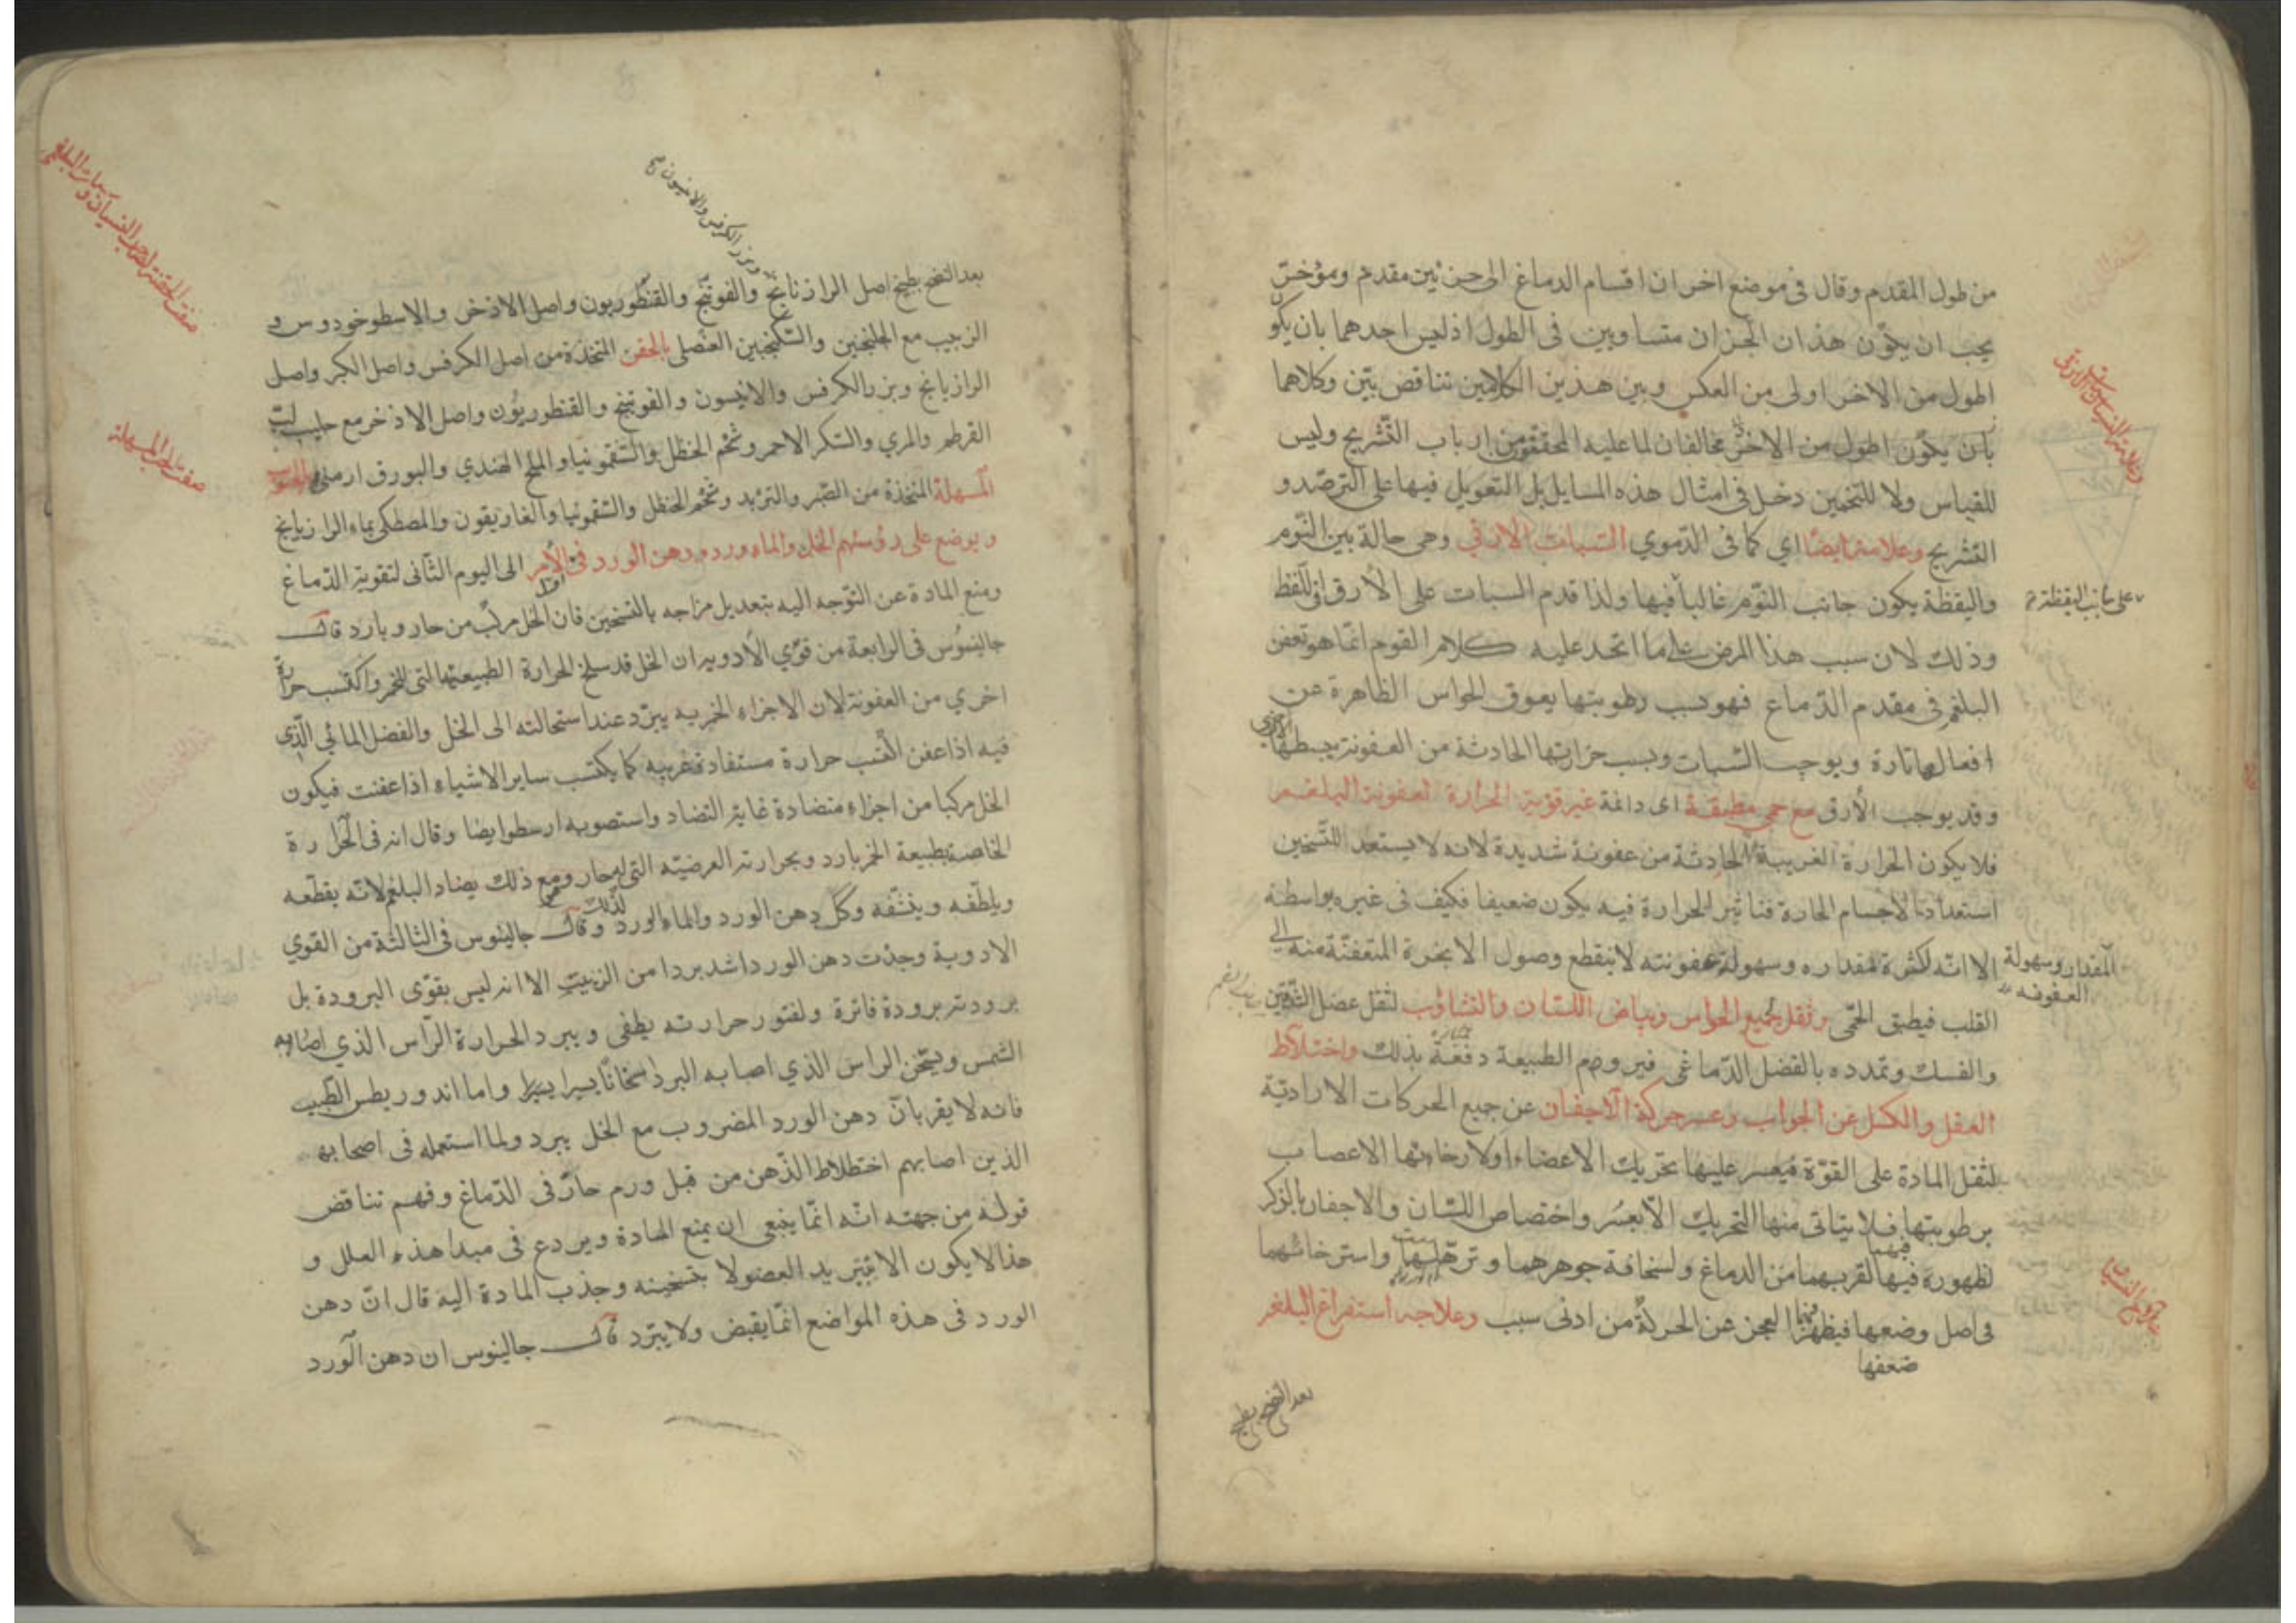 من طول المقدم وقال فى موضع اخر ان اقسام الدماغ الى جزئين مقدم ومؤخر
يجب ان يكون هذان الجزان متساويين فى الطول اذ ليس احدهما بان يكو
اطول من الاخر اولى من العكس وبين هذين الكلامين تناقض بيّن وكلاهما
بان يكون اطول من الاخر مخالفان لما عليه المحققون من ارباب التشريح وليس
للقياس ولا للتخمين دخل فى امثال هذه المسايل بل التعويل فيها على الترصد و
التشريح وعلامته ايضا اي كما فى الدموي السبات الارقي وهى حالة بين النوم
واليقظة يكون جانب النوم غالبا فيها ولذا قدم السبات على الارق فى اللفظ
على جانب اليقظة
وذلك لان سبب هذا المرض على ما اتحد عليه كلام القوم انما هو تعفن
البلغم فى مقدم الدماغ فهو بسبب رطوبتها يعوق الحواس الظاهرة عن
افعالها تارة ويوجب السبات وبسبب حرارتها الحادثة من العفونة يبسطها
وقد يوجب الأرق مع حمى مطبقة اى دائمة غير قوية الحرارة لعفونة البلغم
فلا يكون الحرارة الغريبة الحادثة من عفونة شديدة لانه لا يستعد للتسخين
استعداد الاجسام الحارة فتاثير الحرارة فيه يكون ضعيفا فكيف فى غيره بواسطة
الا انه لكثرة مقداره وسهولة عفونته لا ينقطع وصول الابخرة المتعفنة منه الى
المقدار وسهولة
العفونة
القلب فيطبق الحمى وثقل جميع الحواس وبياض اللسان والتثاؤب لثقل عضل الشدقين
والفك وتمدده بالفضل الدماغى فيروم الطبيعة دفعه بذلك واختلاط
العقل والكسل عن الجواب وعسر حركة الاجفان عن جميع الحركات الارادية
لثقل المادة على القوة فيعسر عليها تحريك الاعضاء او لارخائها الاعصاب
برطوبتها فلا يتاتى منها التحريك الا بعسر واختصاص اللسان والاجفان بالذكر
لظهوره فيها لقربهما من الدماغ ولسخافة جوهرهما وترهلهما واسترخائهما
فى اصل وضعها فيظهر العجز عن الحركة من ادنى سبب وعلاجه استفراغ البلغم
ضعفها
بعد النضج بطبيخ
وبزر الكرفس والانيسون
بعد النضج بطبيخ اصل الرازيانج والفوتنج والقنطوريون واصل الاذخر والاسطوخودوس و
الزبيب مع الجلنجبين والسكنجبين العنصلى بالحقن المتخذة من اصل الكرفس واصل الكبر واصل
الرازيانج وبزر الكرفس والانيسون والفوتنج والقنطوريون واصل الاذخر مع حليب لب
القرطم والمري والسكر الاحمر وشحم الحنظل والسقمونيا والملح الهندي والبورق ارمنى
المسهلة المتخذة من الصبر والتربد وشحم الحنظل والسقمونيا والغاريقون والمصطكى بماء الرازيانج
ويوضع على رؤسهم الخل والماء ورد ودهن الورد فى الأمر الى اليوم الثانى لتقوية الدماغ
ومنع المادة عن التوجه اليه بتعديل مزاجه بالتسخين فان الخل مركب من حار وبارد قال
جالينوس فى الرابعة من قوي الأدوية ان الخل قد سلخ الحرارة الطبيعية التى للخمر واكتسب حرارة
اخري من العفونة لان الاجزاء الخمرية يبرد عند استحالته الى الخل والفضل المائى الذى
فيه اذا عفن اكتسب حرارة مستفادة غريبة كما يكتسب ساير الاشياء اذا عفنت فيكون
الخل مركبا من اجزاء متضادة غاية التضاد واستصوبه ارسطو ايضا وقال انه فى الحرارة
الخاصة بطبيعة الخمر بارد وبحرارته العرضية التى له حار ومع ذلك يضاد البلغم لانه يقطعه
ويلطفه وينشفه وكل دهن الورد والماء الورد وقال جالينوس فى الثالثة من القوي
الادوية وجدت دهن الورد اشد بردا من الزيت الا انه ليس بقوى البرودة بل
برودته برودة فاترة ولفتور حرارته يطفى ويبرد الحرارة الراس الذي اصابه
الشمس ويسخن الراس الذي اصابه البرد اسخانا يسيرا يسيرا واما اندوريطس الطبيب
فانه لا يقر بان دهن الورد المضروب مع الخل يبرد ولما استعمله فى اصحابه
الذين اصابهم اختلاط الذهن من قبل ورم حار فى الدماغ وفهم تناقض
قوله من جهته انه انما ينبغى ان يمنع المادة ويردع فى مبدا هذه العلل و
هذا لا يكون الا بتبريد العضو لا بتسخينه وجذب المادة اليه قال ان دهن
الورد فى هذه المواضع انما يقبض ولا يبرد قال جالينوس ان دهن الورد